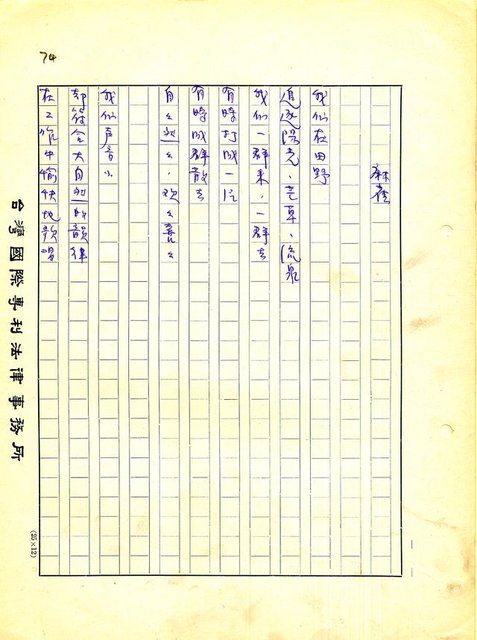 74
麻雀
我们在田野
追逐陽光、芒草、流泉
我们一群来，一群去
有時打成一片
有時成群散去
自々然々，欢々喜々
我们声音小
却符合大自然的韻律
在工作中愉快地歌唱
台灣國際專利法律事務所
(25×12)